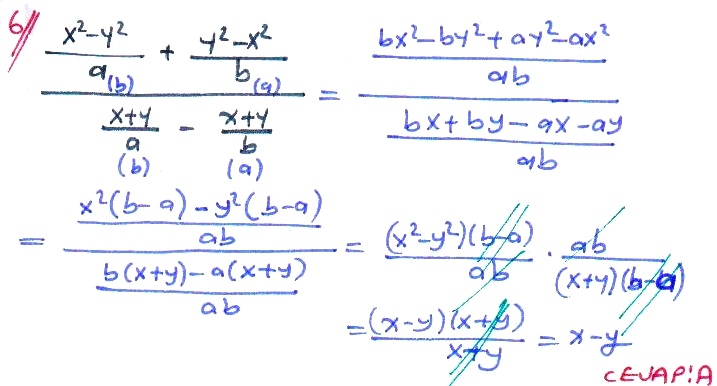 6) \frac{\frac{x²-y²}{a} + \frac{y²-x²}{b}}{\frac{x+y}{a} - \frac{x+y}{b}} = \frac{\frac{bx²-by²+ay²-ax²}{ab}}{\frac{bx+by-ax-ay}{ab}}
(b) (a)
(b) (a)
= \frac{\frac{x²(b-a)-y²(b-a)}{ab}}{\frac{b(x+y)-a(x+y)}{ab}} = \frac{(x²-y²)(b-a)}{ab} · \frac{ab}{(x+y)(b-a)}
= \frac{(x-y)(x+y)}{x+y} = x-y
CEVAP!A